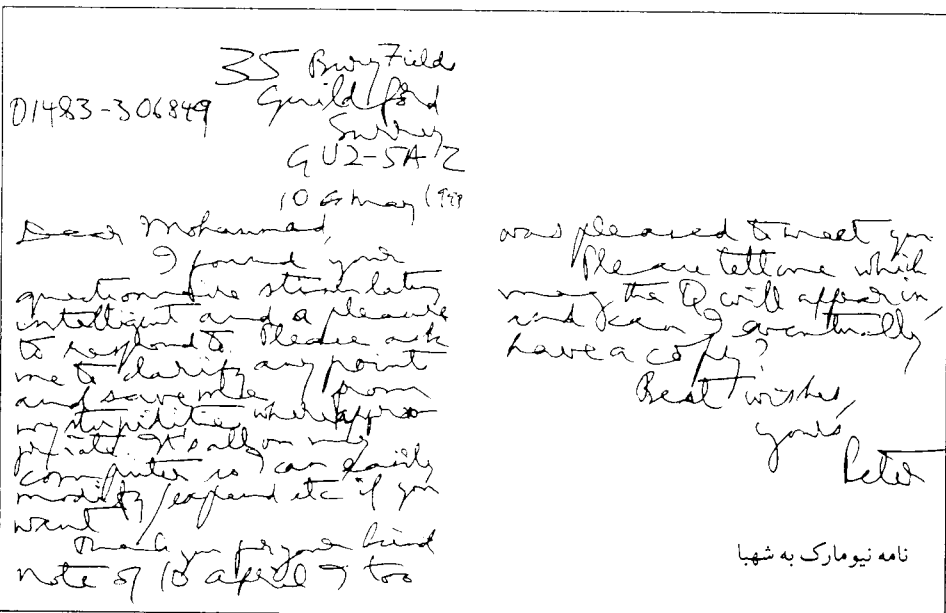 35 Bury Fields
01483-306849 Guildford
Surrey
GU2-5AZ
10 May 1998
Dear Mohammad,
I found your
questionnaire stimulating
intelligent and a pleasure
to respond to. Please ask
me to clarify any point
and save me from
my stupidities where appro
priate. It's all on my
computer so I can easily
modify/expand etc if you
want
Thank you for your kind
note of 10 april I too
was pleased to meet you
Please tell me which
mag the Q will appear in,
and can I eventually
have a copy?
Best wishes,
yours,
Peter
نامه نیومارک به شهبا